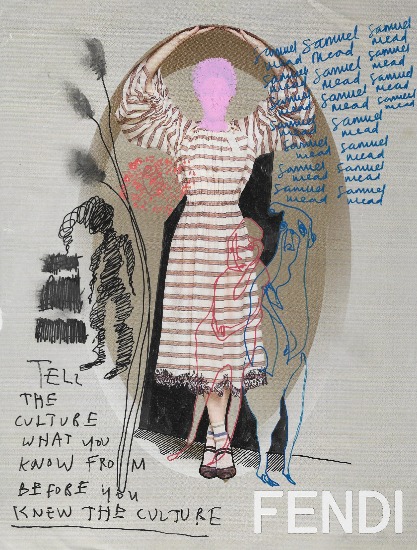 Samuel Samuel Samuel
Mead Mead Mead
Samuel Samuel Samuel
Mead Mead Mead
Samuel Samuel Samuel
Mead Mead Mead
Samuel Samuel
Mead Mead
Samuel Samuel
Mead Mead
Samuel Samuel
Mead Mead
Samuel Samuel
Mead Mead
TELL
THE
CULTURE
WHAT YOU
KNOW FROM
BEFORE YOU
KNEW THE CULTURE
FENDI